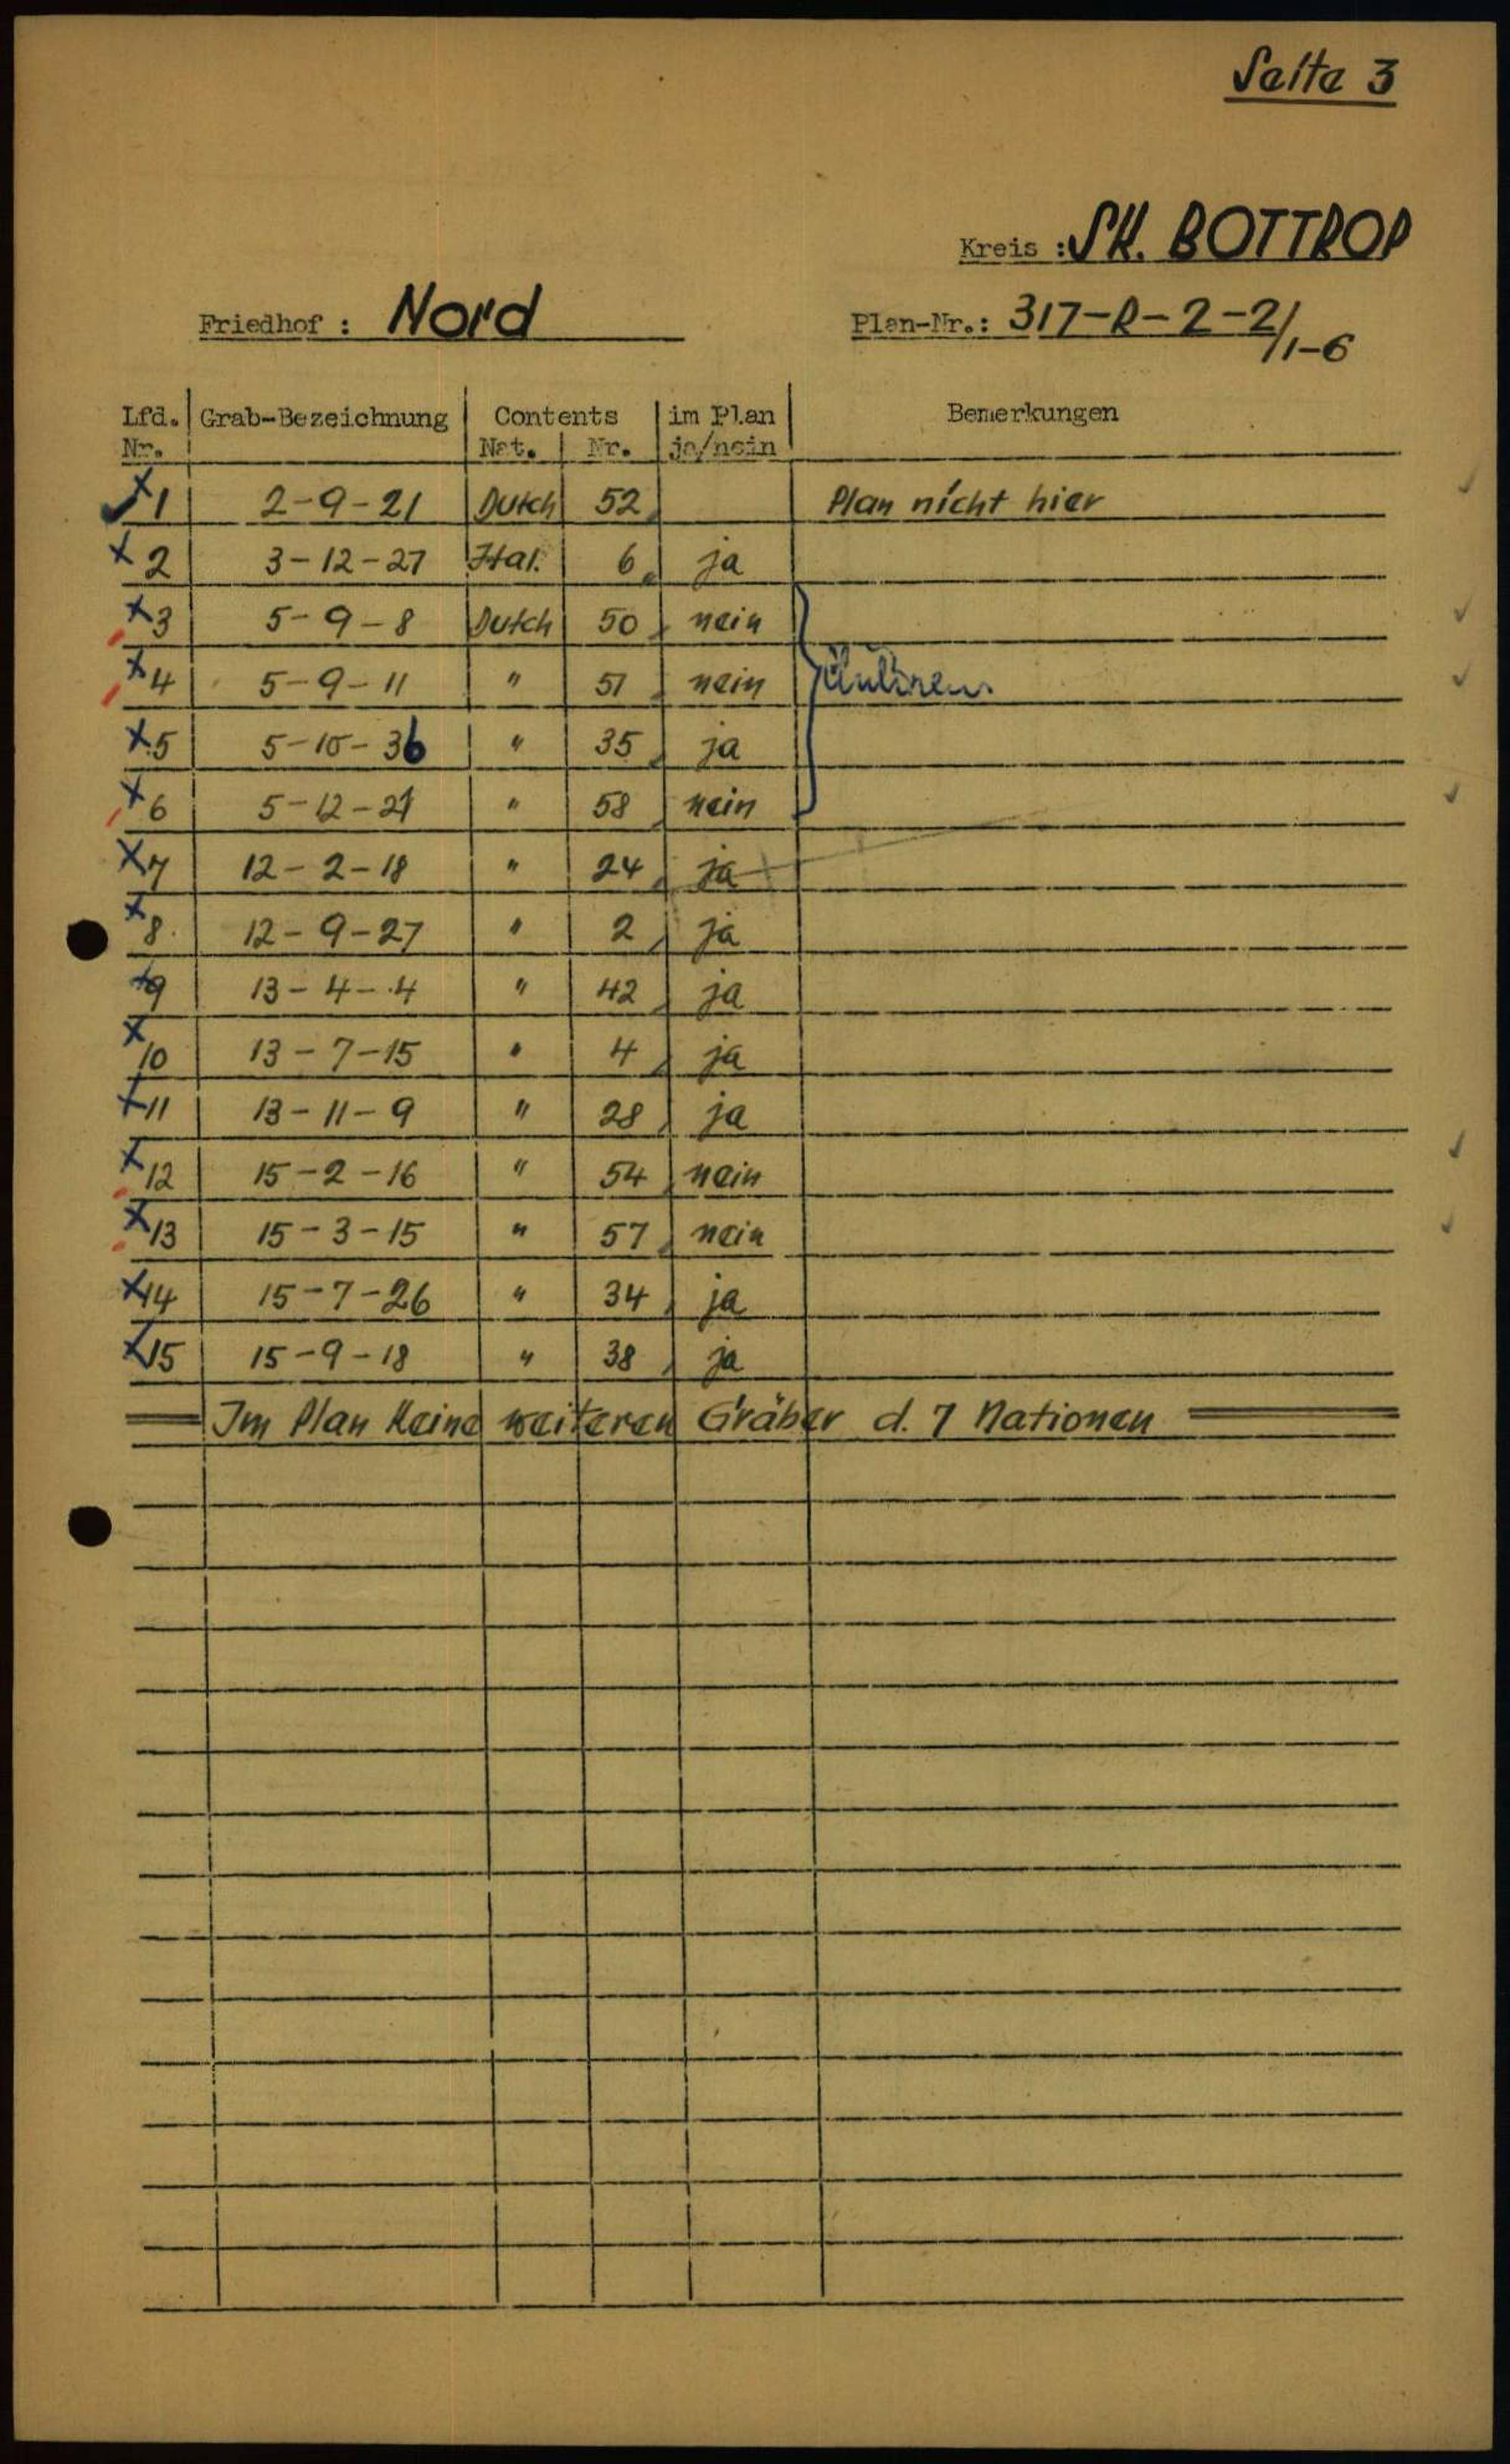 Seite 3
Kreis : SK. BOTTROP
Friedhof : Nord
Plan-Nr.: 317-R-2-2/1-6
Lfd. Nr. Grab-Bezeichnung Contents im Plan Bemerkungen
Nat. Nr. ja/nein
x 1 2-9-21 Dutch 52 Plan nicht hier
x 2 3-12-27 Ital. 6 ja
x 3 5-9-8 Dutch 50 nein
x 4 5-9-11 " 51 nein
x 5 5-10-36 " 35 ja
x 6 5-12-21 " 58 nein
x 7 12-2-18 " 24 ja
x 8 12-9-27 " 2 ja
x 9 13-4-4 " 42 ja
x 10 13-7-15 " 4 ja
x 11 13-11-9 " 28 ja
x 12 15-2-16 " 54 nein
x 13 15-3-15 " 57 nein
x 14 15-7-26 " 34 ja
x 15 15-9-18 " 38 ja
Im Plan keine weiteren Gräber d. 7 Nationen